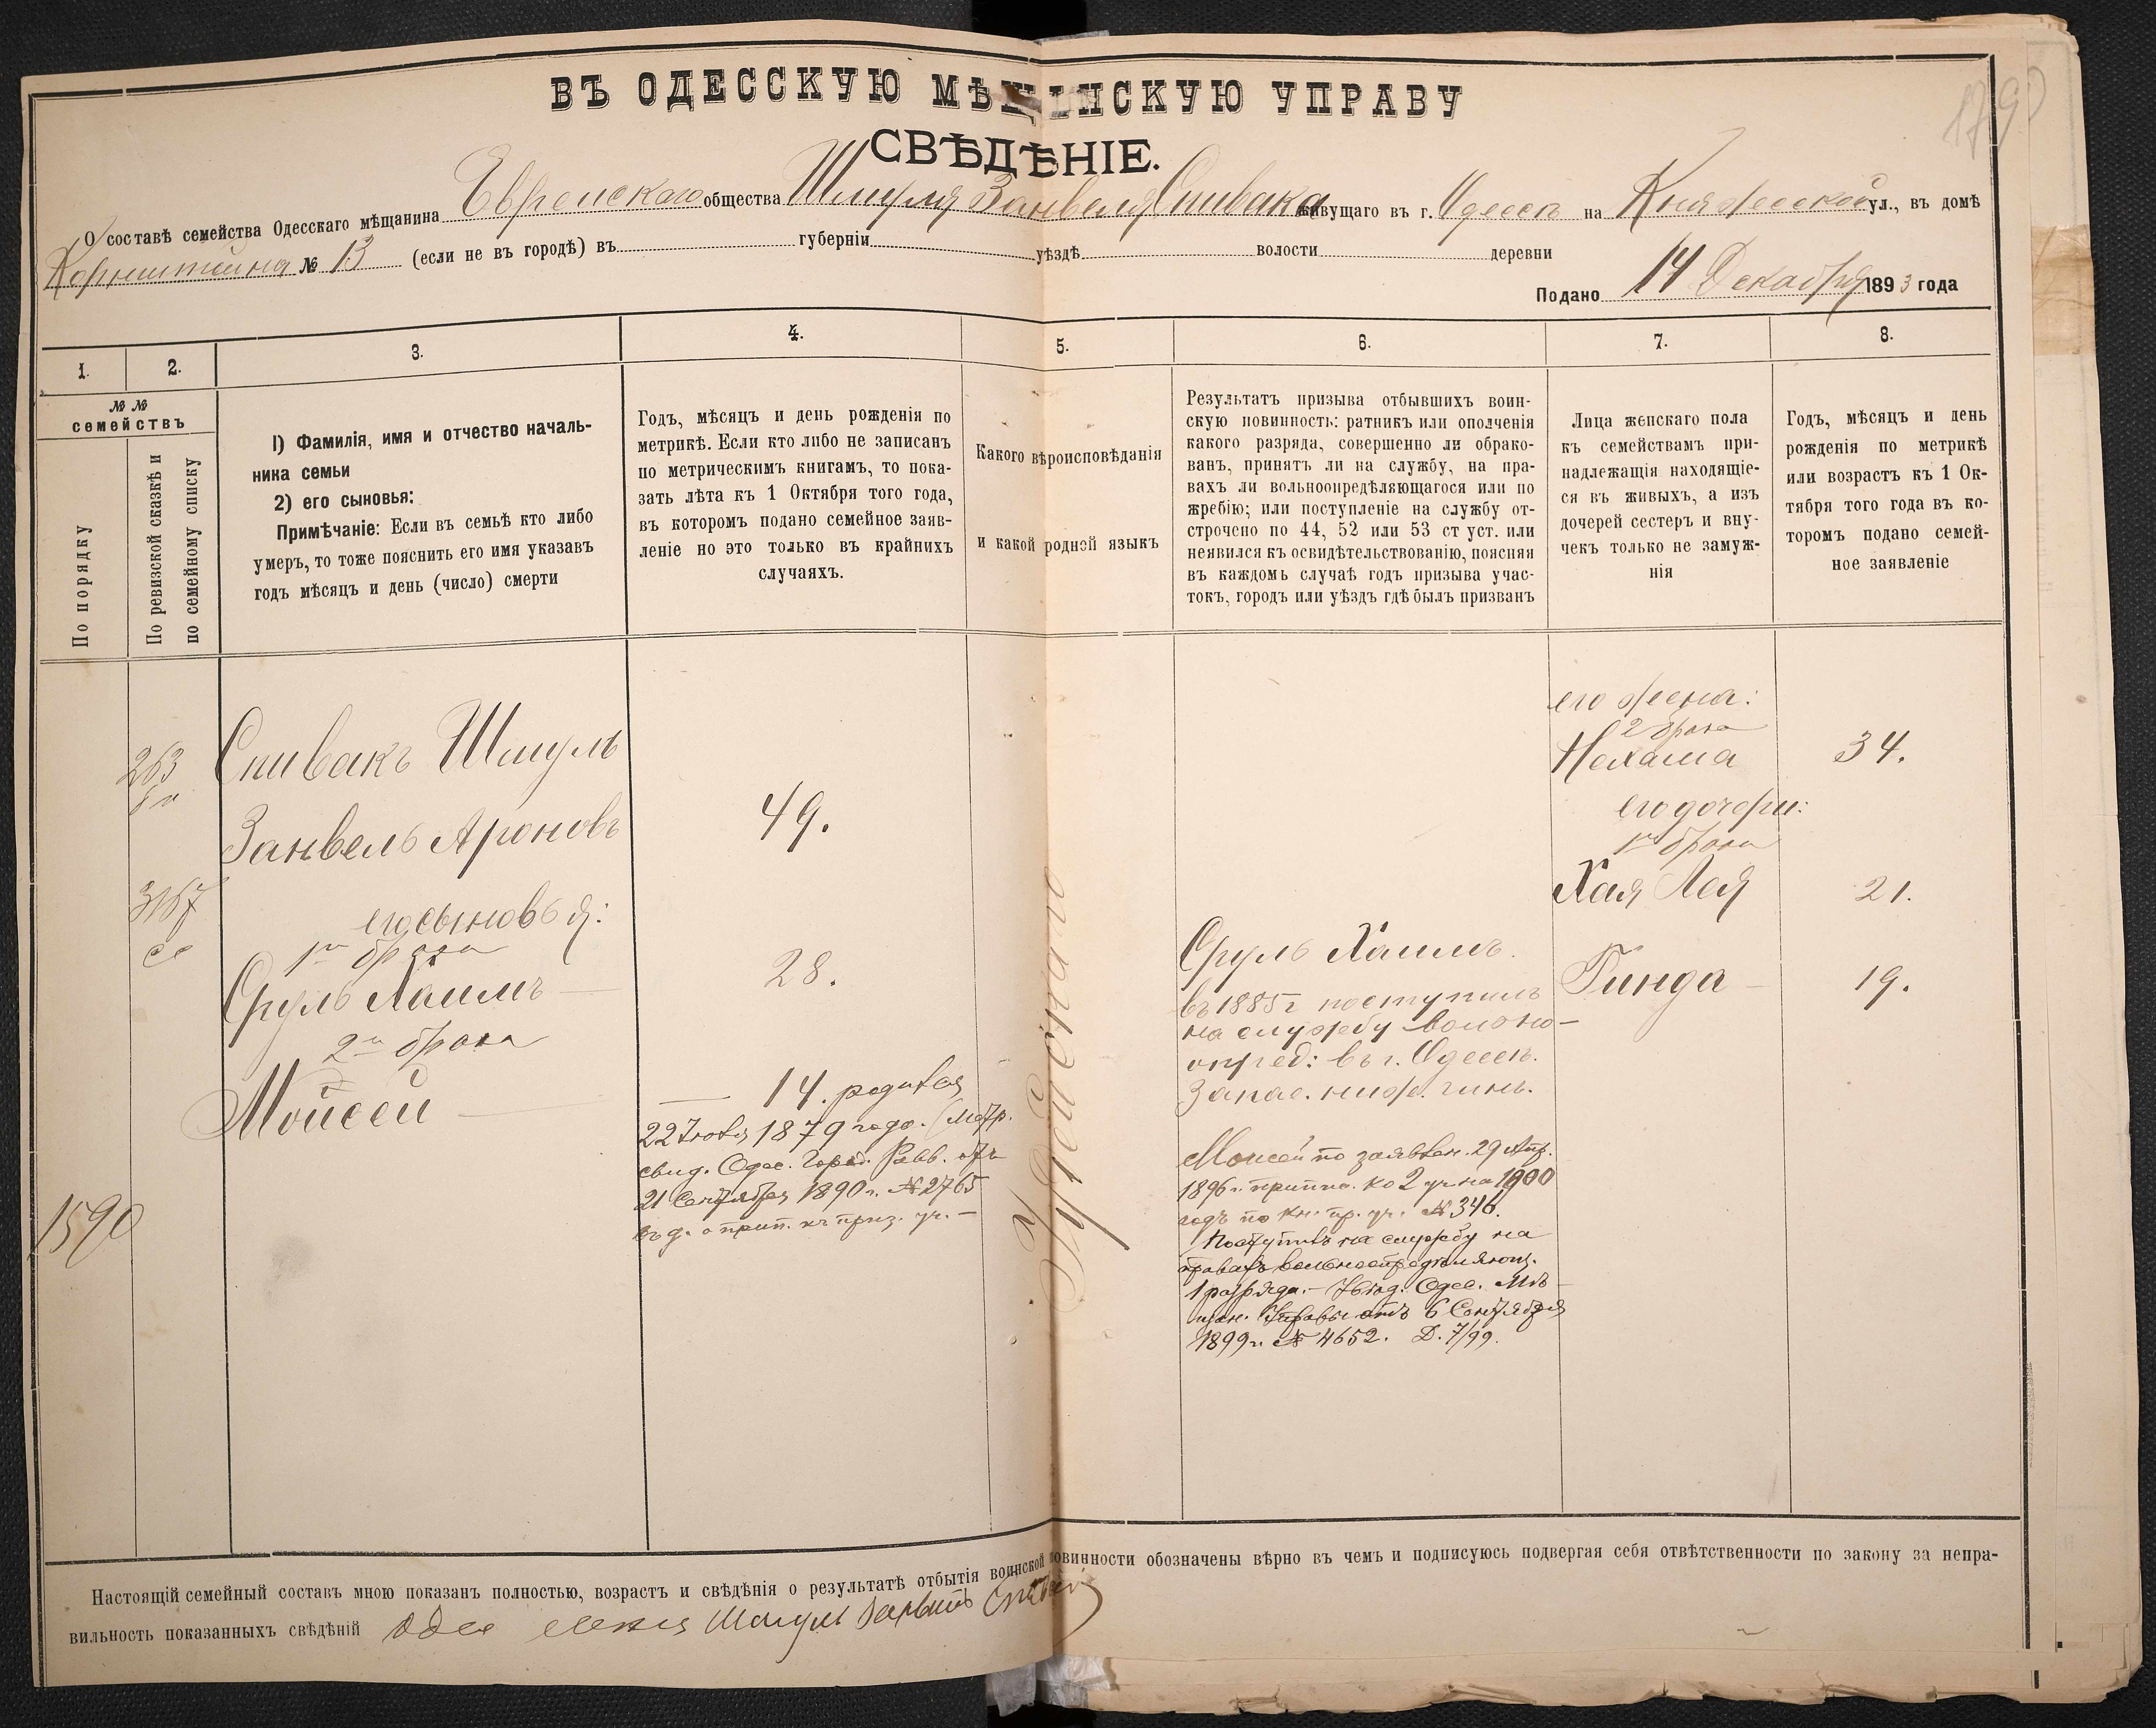 ВЪ ОДЕССКУЮ МѢЩАНСКУЮ УПРАВУ
СВѢДѢНІЕ.
О составѣ семейства Одесскаго мѣщанина Еврейскаго общества Шмуля Занвеля Спивака живущаго въ г. Одессѣ на Княжеской ул., въ домѣ
Корнштейна № 13 (если не въ городѣ) въ губерніи уѣздѣ волости деревни
Подано 14 Декабря 1893 года
1.
2.
3.
4.
5.
6.
7.
8.
№ №
семействъ
По порядку
По ревизской сказкѣ и
по семейному списку
1) Фамилія, имя и отчество началь-
ника семьи
2) его сыновья:
Примѣчаніе: Если въ семьѣ кто либо
умеръ, то тоже пояснить его имя указавъ
годъ мѣсяцъ и день (число) смерти
Годъ, мѣсяцъ и день рожденія по
метрикѣ. Если кто либо не записанъ
по метрическимъ книгамъ, то пока-
зать лѣта къ 1 Октября того года,
въ которомъ подано семейное заяв-
леніе но это только въ крайнихъ
случаяхъ.
Какого вѣроисповѣданія
и какой родной языкъ
Результатъ призыва отбывшихъ воин-
скую повинность: ратникъ или ополченія
какого разряда, совершенно ли обрако-
ванъ, принятъ ли на службу, на пра-
вахъ ли вольноопредѣляющагося или по
жребію; или поступленіе на службу от-
строчено по 44, 52 или 53 ст уст. или
неявился къ освидѣтельствованію, поясняя
въ каждомъ случаѣ годъ призыва учас-
токъ, городъ или уѣздъ гдѣ былъ призванъ
Лица женскаго пола
къ семействамъ при-
надлежащія находящіе-
ся въ живыхъ, а изъ
дочерей сестеръ и вну-
чекъ только не замуж-
нія
Годъ, мѣсяцъ и день
рожденія по метрикѣ
или возрастъ къ 1 Ок-
тября того года въ ко-
торомъ подано семей-
ное заявленіе
1590
263
3167
Спивакъ Шмуль
Занвель Ароновъ
его сыновья:
1го брака
Сруль Хаимъ —
2го брака
Мойсей —
49.
28.
— 14. родился
22 Іюля 1879 года. (Метр.
свид. Одес. Город. Равв. отъ
21 Сентября 1890 г. № 2765
въ д. о прип. къ приз. уч. —
Іудейскаго
Сруль Хаимъ.
въ 1885 г поступилъ
на службу вольно-
опред: въ г. Одессѣ.
Запас. нижн. чинъ.
Моисей по заявлен. 29 Апр.
1896 г. припис. ко 2 уч. на 1900
годъ по кн. пр. уч. № 346.
Поступилъ на службу на
правахъ вольноопредѣляющ.
1 разряда. — Увѣд. Одес. Мѣ-
щан. Управы отъ 6 Сентября
1899 г. № 4652. Д. 7/99.
его жена:
2 брака
Нехама
34.
его дочери:
1го брака
Хая Лея
21.
Гинда —
19.
Настоящій семейный составъ мною показанъ полностью, возрастъ и свѣдѣнія о результатѣ отбытія воинской повинности обозначены вѣрно въ чемъ и подписуюсь подвергая себя отвѣтственности по закону за непра-
вильность показанныхъ свѣдѣній Шмуль